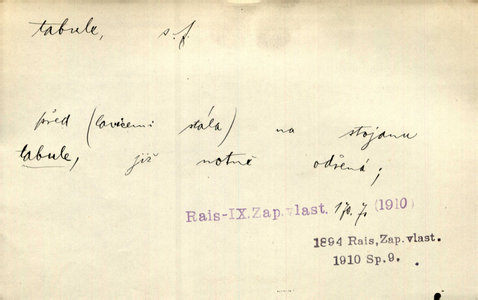 tabule, s. f.
před (lavicemi stála) na stojanu
tabule, již notně odřená;
Rais-IX.Zap.vlast. 170. 7. (1910)
1894 Rais, Zap. vlast.
1910 Sp. 9.